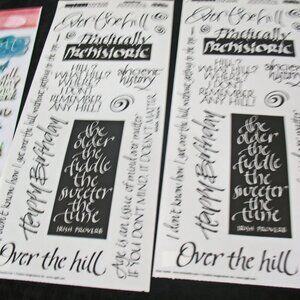 Over the hill
Practically
PREHISTORIC
HILL?
WHAT HILL?
WHERE?
I DON'T
REMEMBER
ANY HILL!
ancient
history
I don't know how I got over the hill without getting to the top
Happy Birthday
the
older
the
fiddle
the
sweeter
the
tune
IRISH PROVERB
Age is an issue of mind over matter
IF YOU DON'T MIND, IT DOESN'T MATTER
Over the hill
Over the hill
Practically
PREHISTORIC
HILL?
WHAT HILL?
WHERE?
I DON'T
REMEMBER
ANY HILL!
ancient
history
I don't know how I got over the hill without getting to the top
Happy Birthday
the
older
the
fiddle
the
sweeter
the
tune
IRISH PROVERB
Age is an issue of mind over matter
IF YOU DON'T MIND, IT DOESN'T MATTER
Over the hill